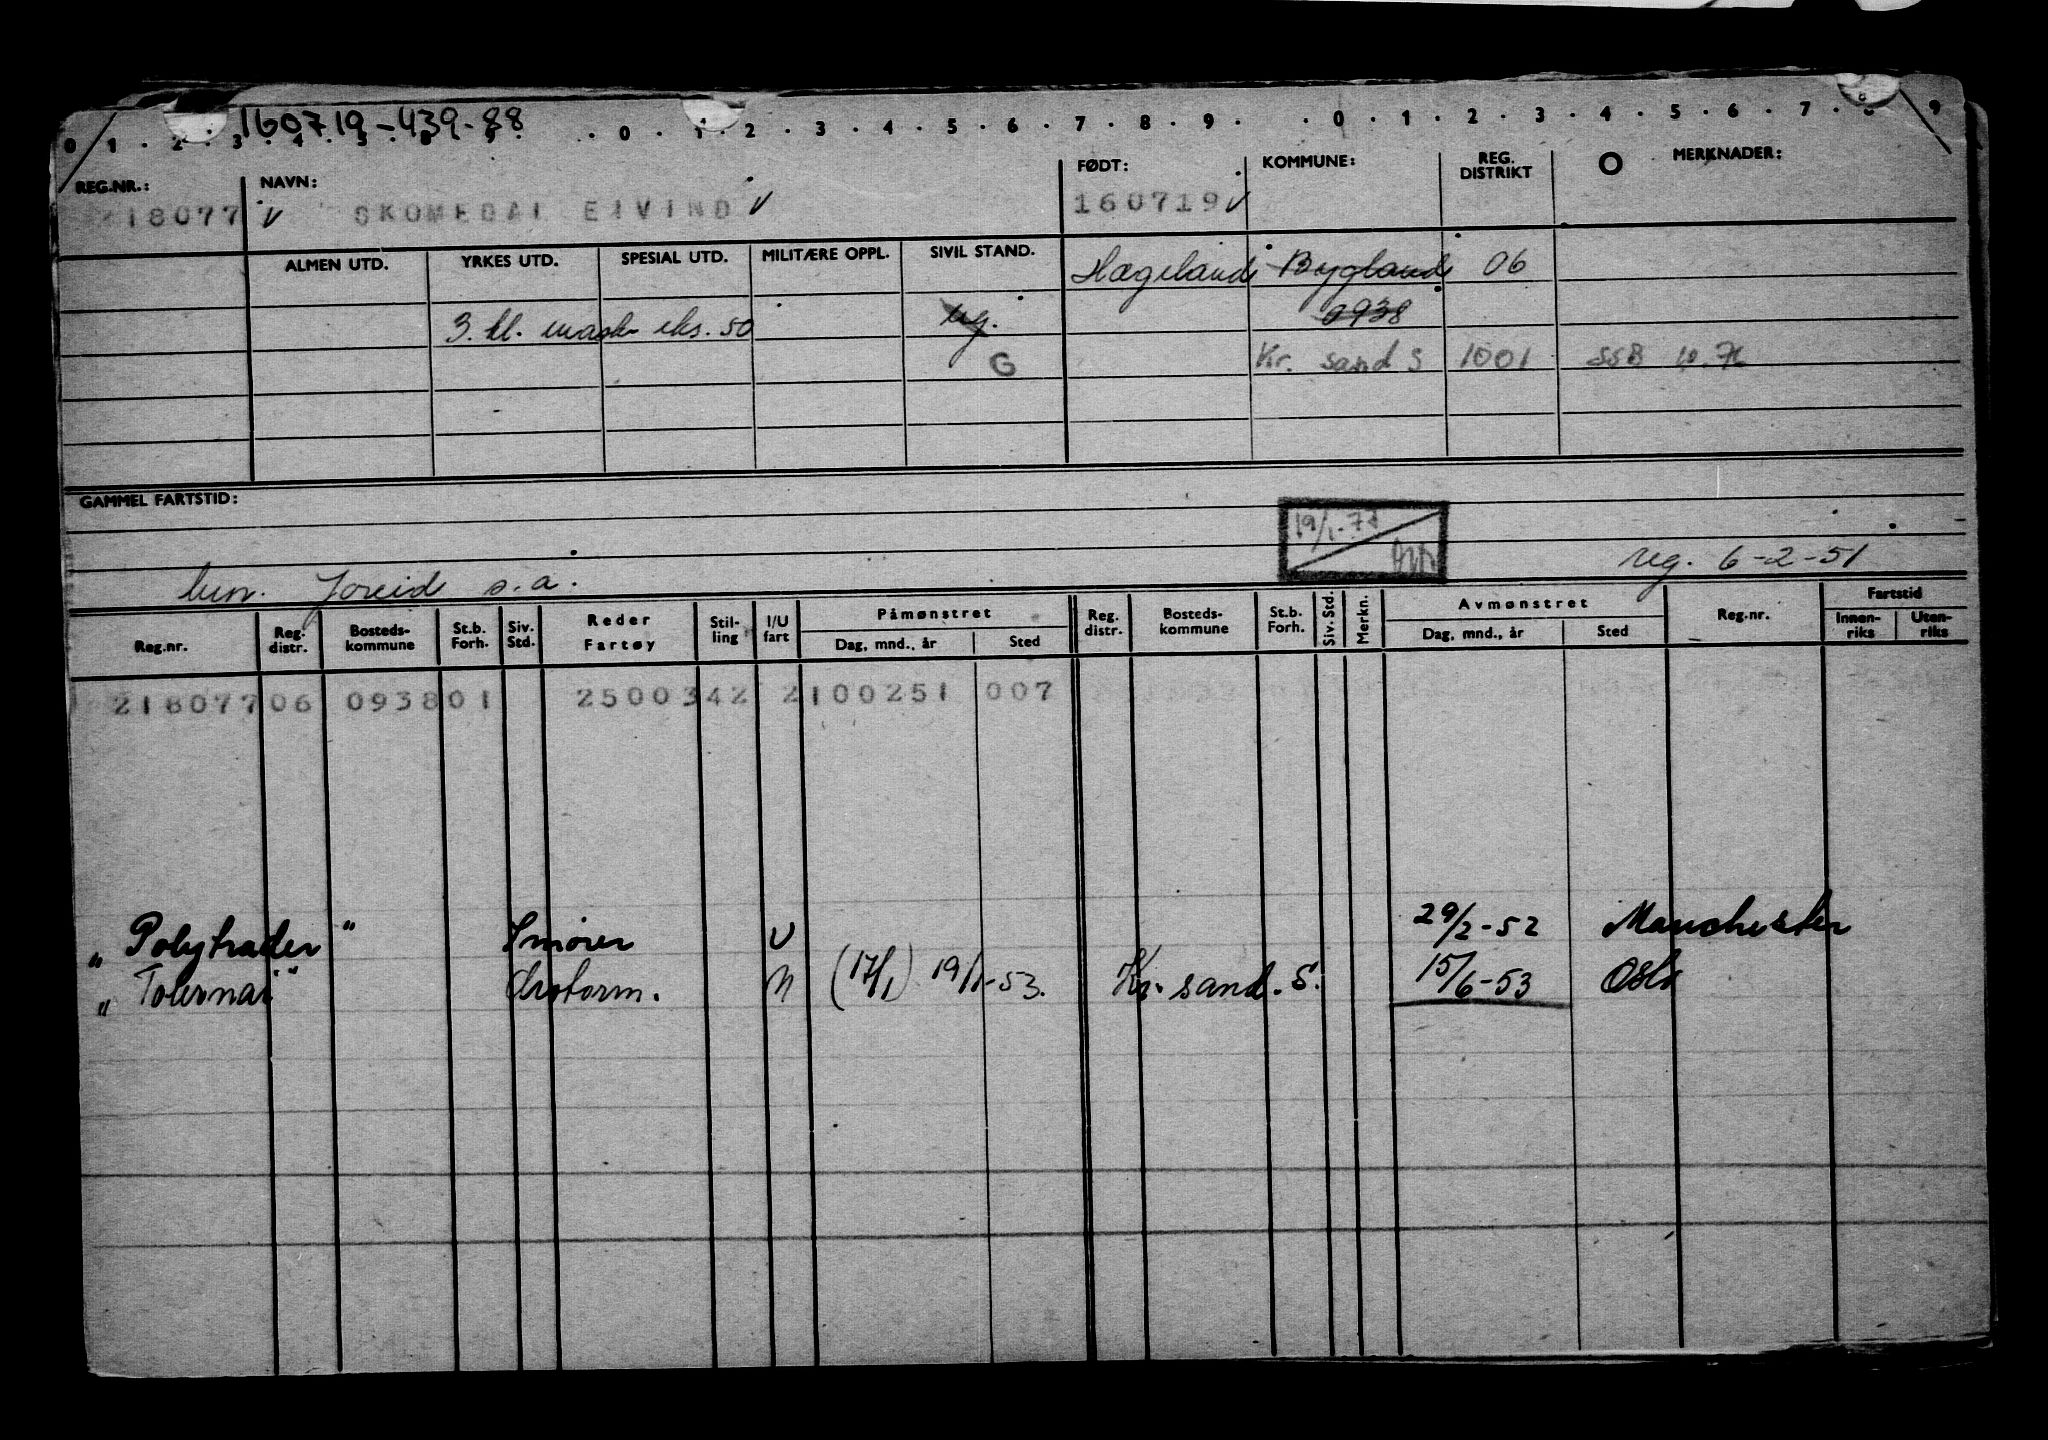 160719-439-88
0 1 2 3 4 5 6 7 8 9 0 1 2 3 4 5 6 7 8 9 0 1 2 3 4 5 6 7 8 9
REG.NR.: NAVN: FØDT: KOMMUNE: REG. DISTRIKT MERKNADER:
218077 SKOMEDAL EIVIND 160719
ALMEN UTD. YRKES UTD. SPESIAL UTD. MILITÆRE OPPL. SIVIL STAND. Hægeland Bygland 06
3. kl. mask eks. 50 ug. 0938
G Kr. sand S 1001 SSB
GAMMEL FARTSTID:
19/1-72
s.a. reg. 6-2-51
Reg.nr. Reg. distr. Bosteds-kommune St.b. Forh. Siv. Std. Reder Fartøy Stil-ling I/U fart Påmønstret Dag, mnd., år Sted Reg. distr. Bosteds-kommune St.b. Forh. Siv. Std. Merkn. Avmønstret Dag, mnd., år Sted Reg.nr. Fartstid Innen-riks Uten-riks
218077 06 0938 01 2500342 2100251 007
" Polytrader " Smører U 29/2-52 Manchester
" Tournai " Drotorm. N (17/1) 19/1-53. Kr. sand. S. 15/6-53 Oslo